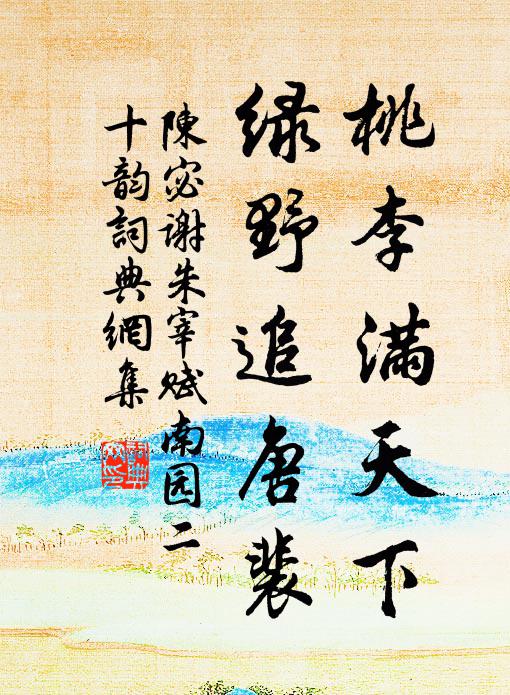 桃李满天下
绿野追唐裴
陳宓谢朱宰赋南园二
十韵詞典網集